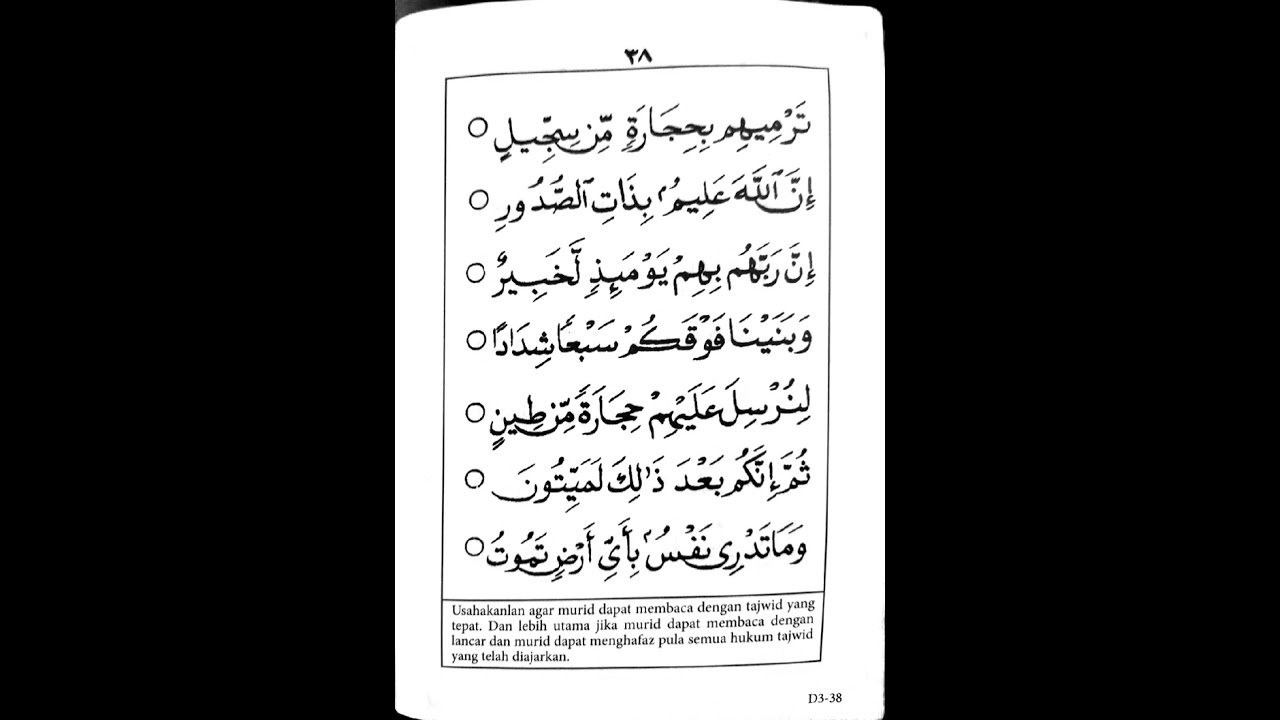 ٣٨
تَرْمِيهِم بِحِجَارَةٍ مِّن سِجِّيلٍ ○
إِنَّ ٱللَّهَ عَلِيمُۢ بِذَاتِ ٱلصُّدُورِ ○
إِنَّ رَبَّهُم بِهِمْ يَوْمَئِذٍ لَّخَبِيرٌ ○
وَبَنَيْنَا فَوْقَكُمْ سَبْعًا شِدَادًا ○
لِنُرْسِلَ عَلَيْهِمْ حِجَارَةً مِّن طِينٍ ○
ثُمَّ إِنَّكُم بَعْدَ ذَٰلِكَ لَمَيِّتُونَ ○
وَمَا تَدْرِى نَفْسُۢ بِأَىِّ أَرْضٍ تَمُوتُ ○
Usahakanlan agar murid dapat membaca dengan tajwid yang
tepat. Dan lebih utama jika murid dapat membaca dengan
lancar dan murid dapat menghafaz pula semua hukum tajwid
yang telah diajarkan.
D3-38